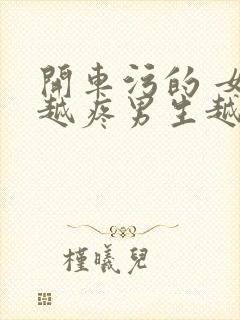 開車污的 女
越疼男生越
槿曦兒